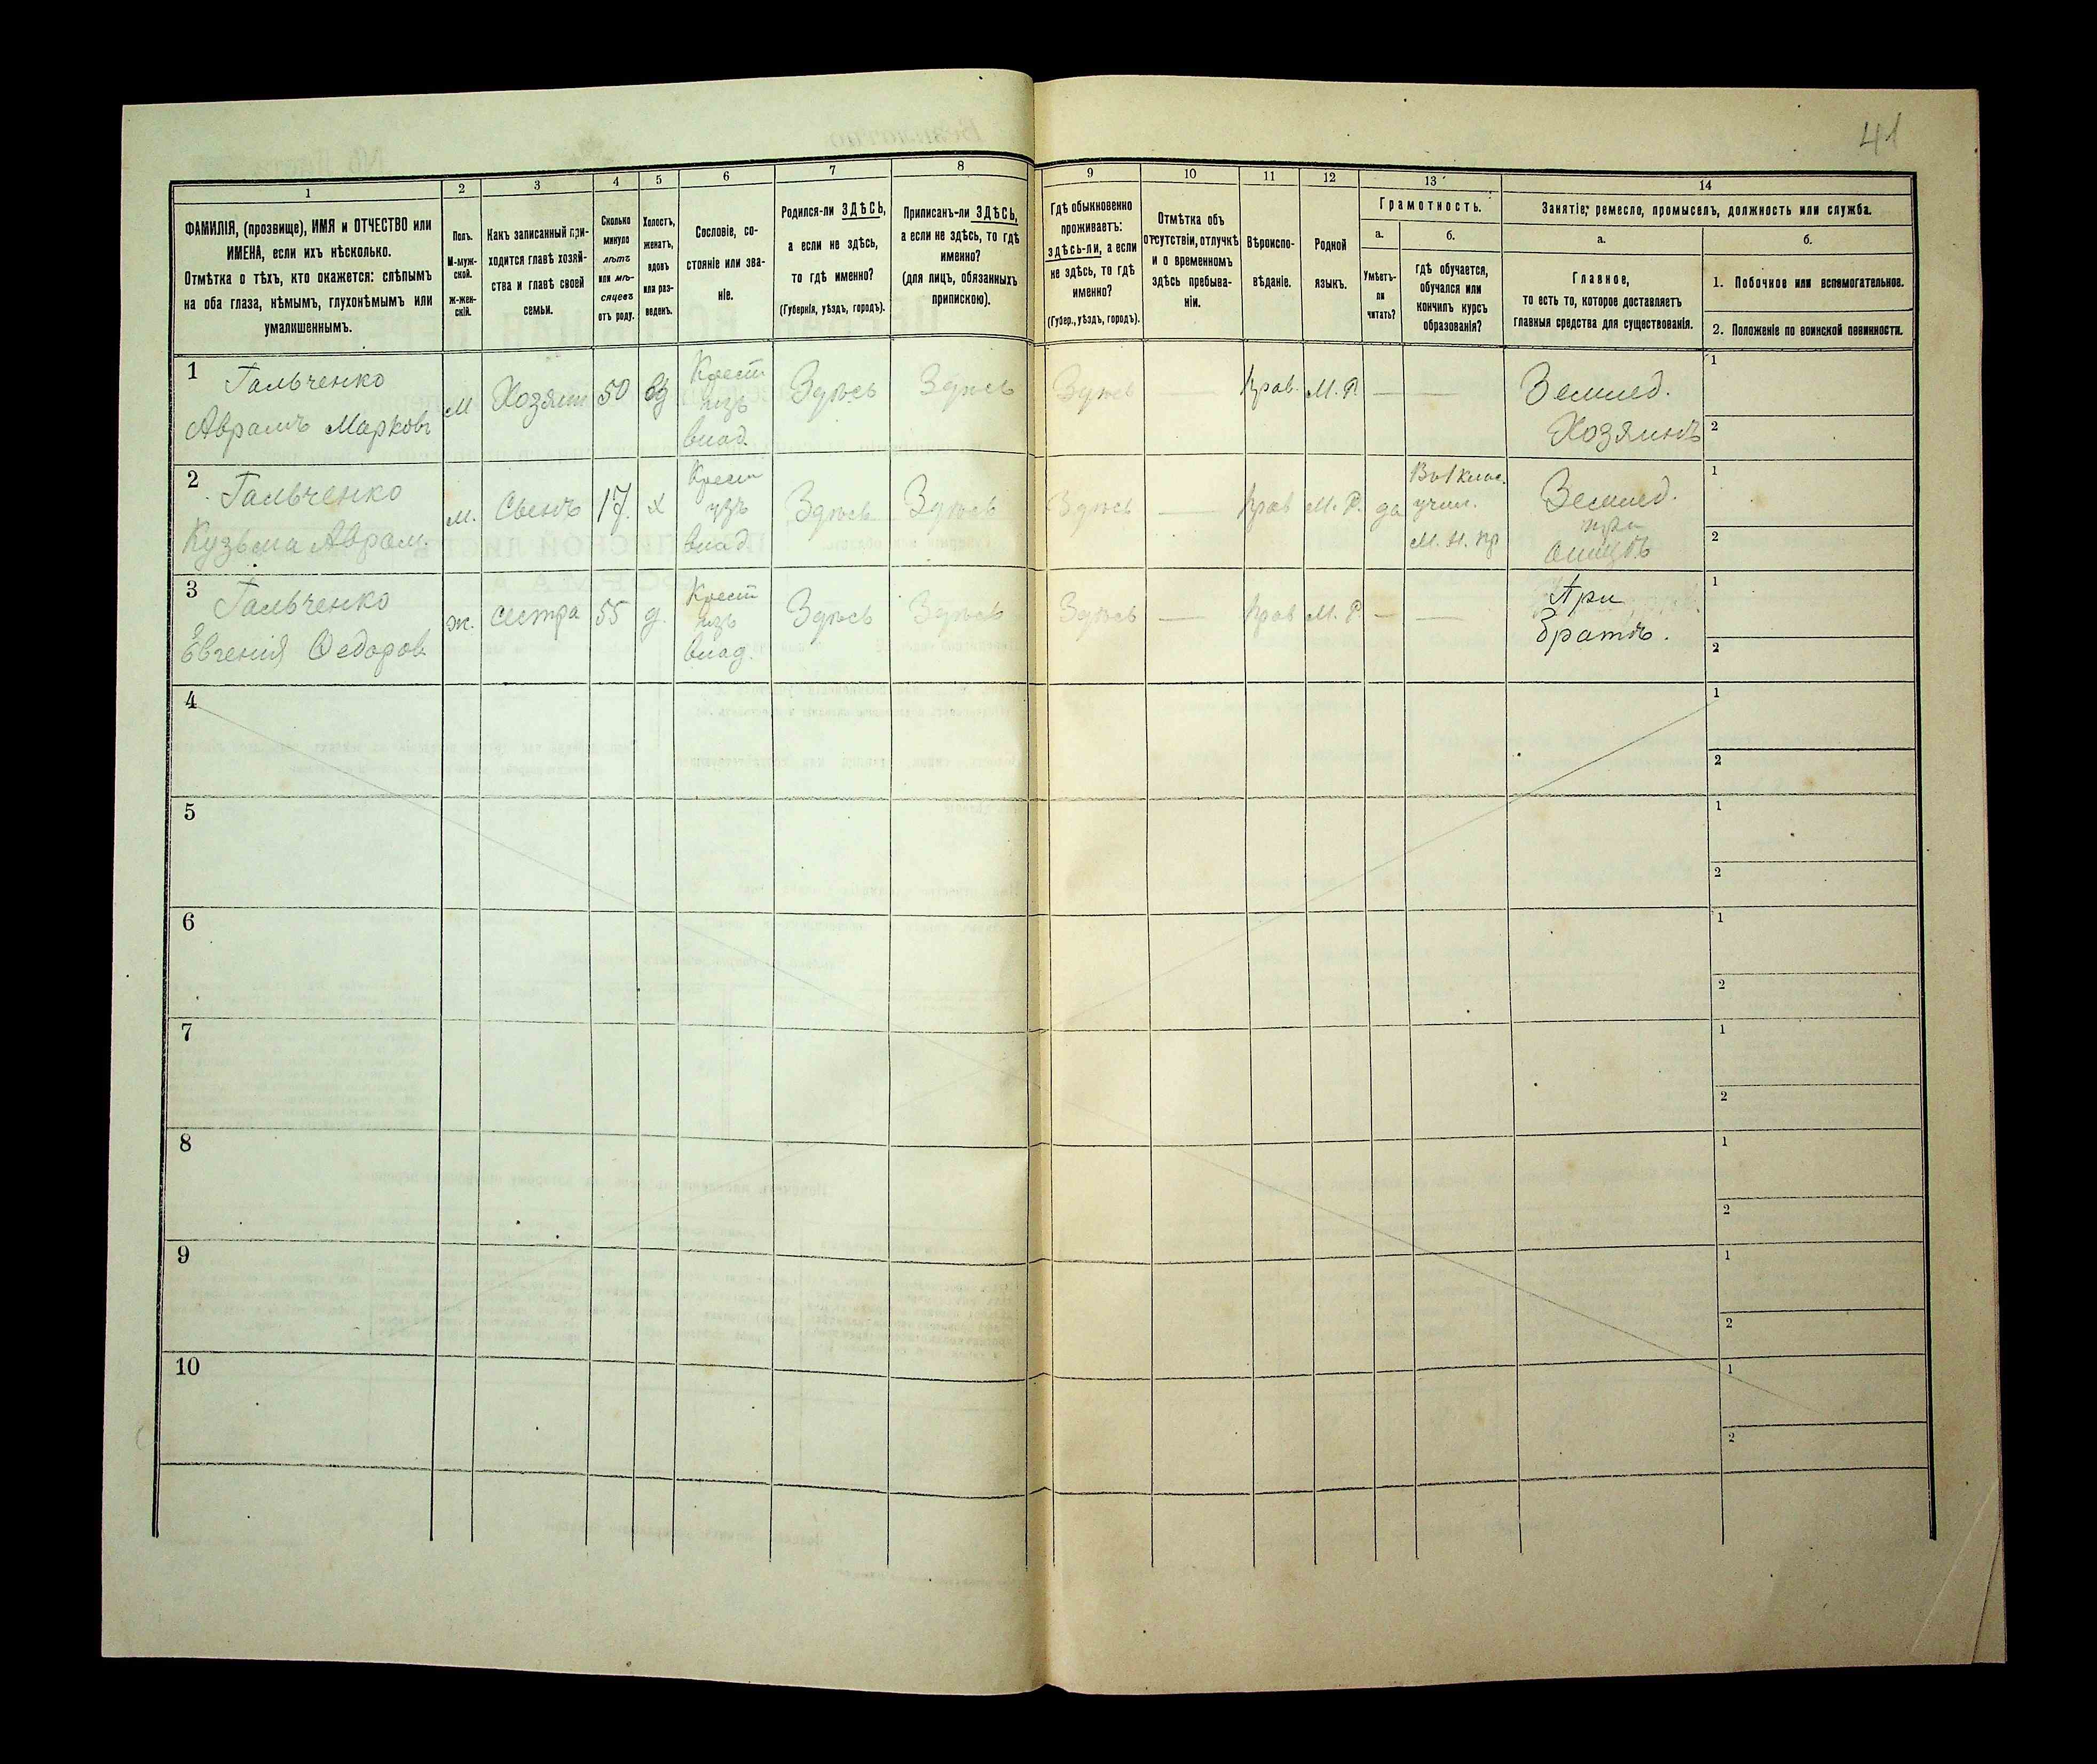 41
1
2
3
4
5
6
7
8
9
10
11
12
13
14
ФАМИЛІЯ, (прозвище), ИМЯ и ОТЧЕСТВО или
ИМЕНА, если ихъ нѣсколько.
Отмѣтка о тѣхъ, кто окажется: слѣпымъ
на оба глаза, нѣмымъ, глухонѣмымъ или
умалишеннымъ.
Полъ.
М-муж-
ской.
ж-жен-
скій.
Какъ записанный при-
ходится главѣ хозяй-
ства и главѣ своей
семьи.
Сколько
минуло
лѣтъ
или мѣ-
сяцевъ
отъ роду.
Холостъ,
женатъ,
вдовъ
или раз-
веденъ.
Сословіе, со-
стояніе или зва-
ніе.
Родился-ли ЗДѢСЬ,
а если не здѣсь,
то гдѣ именно?
(Губернія, уѣздъ, городъ).
Приписанъ-ли ЗДѢСЬ,
а если не здѣсь, то гдѣ
именно?
(для лицъ, обязанныхъ
припискою).
Гдѣ обыкновенно
проживаетъ:
здѣсь-ли, а если
не здѣсь, то гдѣ
именно?
(Губер., уѣздъ, городъ).
Отмѣтка объ
отсутствіи, отлучкѣ
и о временномъ
здѣсь пребыва-
ніи.
Вѣроиспо-
вѣданіе.
Родной
языкъ.
Грамотность.
а.
Умѣетъ-
ли
читать?
б.
гдѣ обучается,
обучался или
кончилъ курсъ
образованія?
Занятіе, ремесло, промыселъ, должность или служба.
а.
Главное,
то есть то, которое доставляетъ
главныя средства для существованія.
б.
1. Побочное или вспомогательное.
2. Положеніе по воинской повинности.
1
Гальченко
Аврамъ Марковъ
м
Хозяин
50
вд
Крест
изъ
влад.
Здѣсь
Здѣсь
Здѣсь
—
Прав.
М. Р.
—
—
Землед.
Хозяинъ
1
2
2
Гальченко
Кузьма Аврам.
м.
Сынъ
17.
х
Крест
изъ
влад
Здѣсь
Здѣсь
Здѣсь
—
Прав
М. Р.
да
Въ 1 клас.
учил.
М. Н. Пр
Землед.
при
отцѣ
1
2
3
Гальченко
Евгенія Ѳедоров.
ж.
сестра
55
д.
Крест
изъ
влад.
Здѣсь
Здѣсь
Здѣсь
—
Прав
М. Р.
—
—
При
братѣ.
1
2
4
1
2
5
1
2
6
1
2
7
1
2
8
1
2
9
1
2
10
1
2